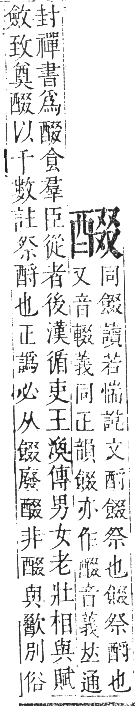 醊
同餟讀若惴說文酹餟祭也餟祭酹也
又音輟義同正韻餟亦作醊音義𠀤通
封禪書爲醊食羣臣從者後漢循吏王渙傳男女老壯相與賦
斂致奠醊以千數註祭酹也正譌必从餟廢醊非醊與歠別俗